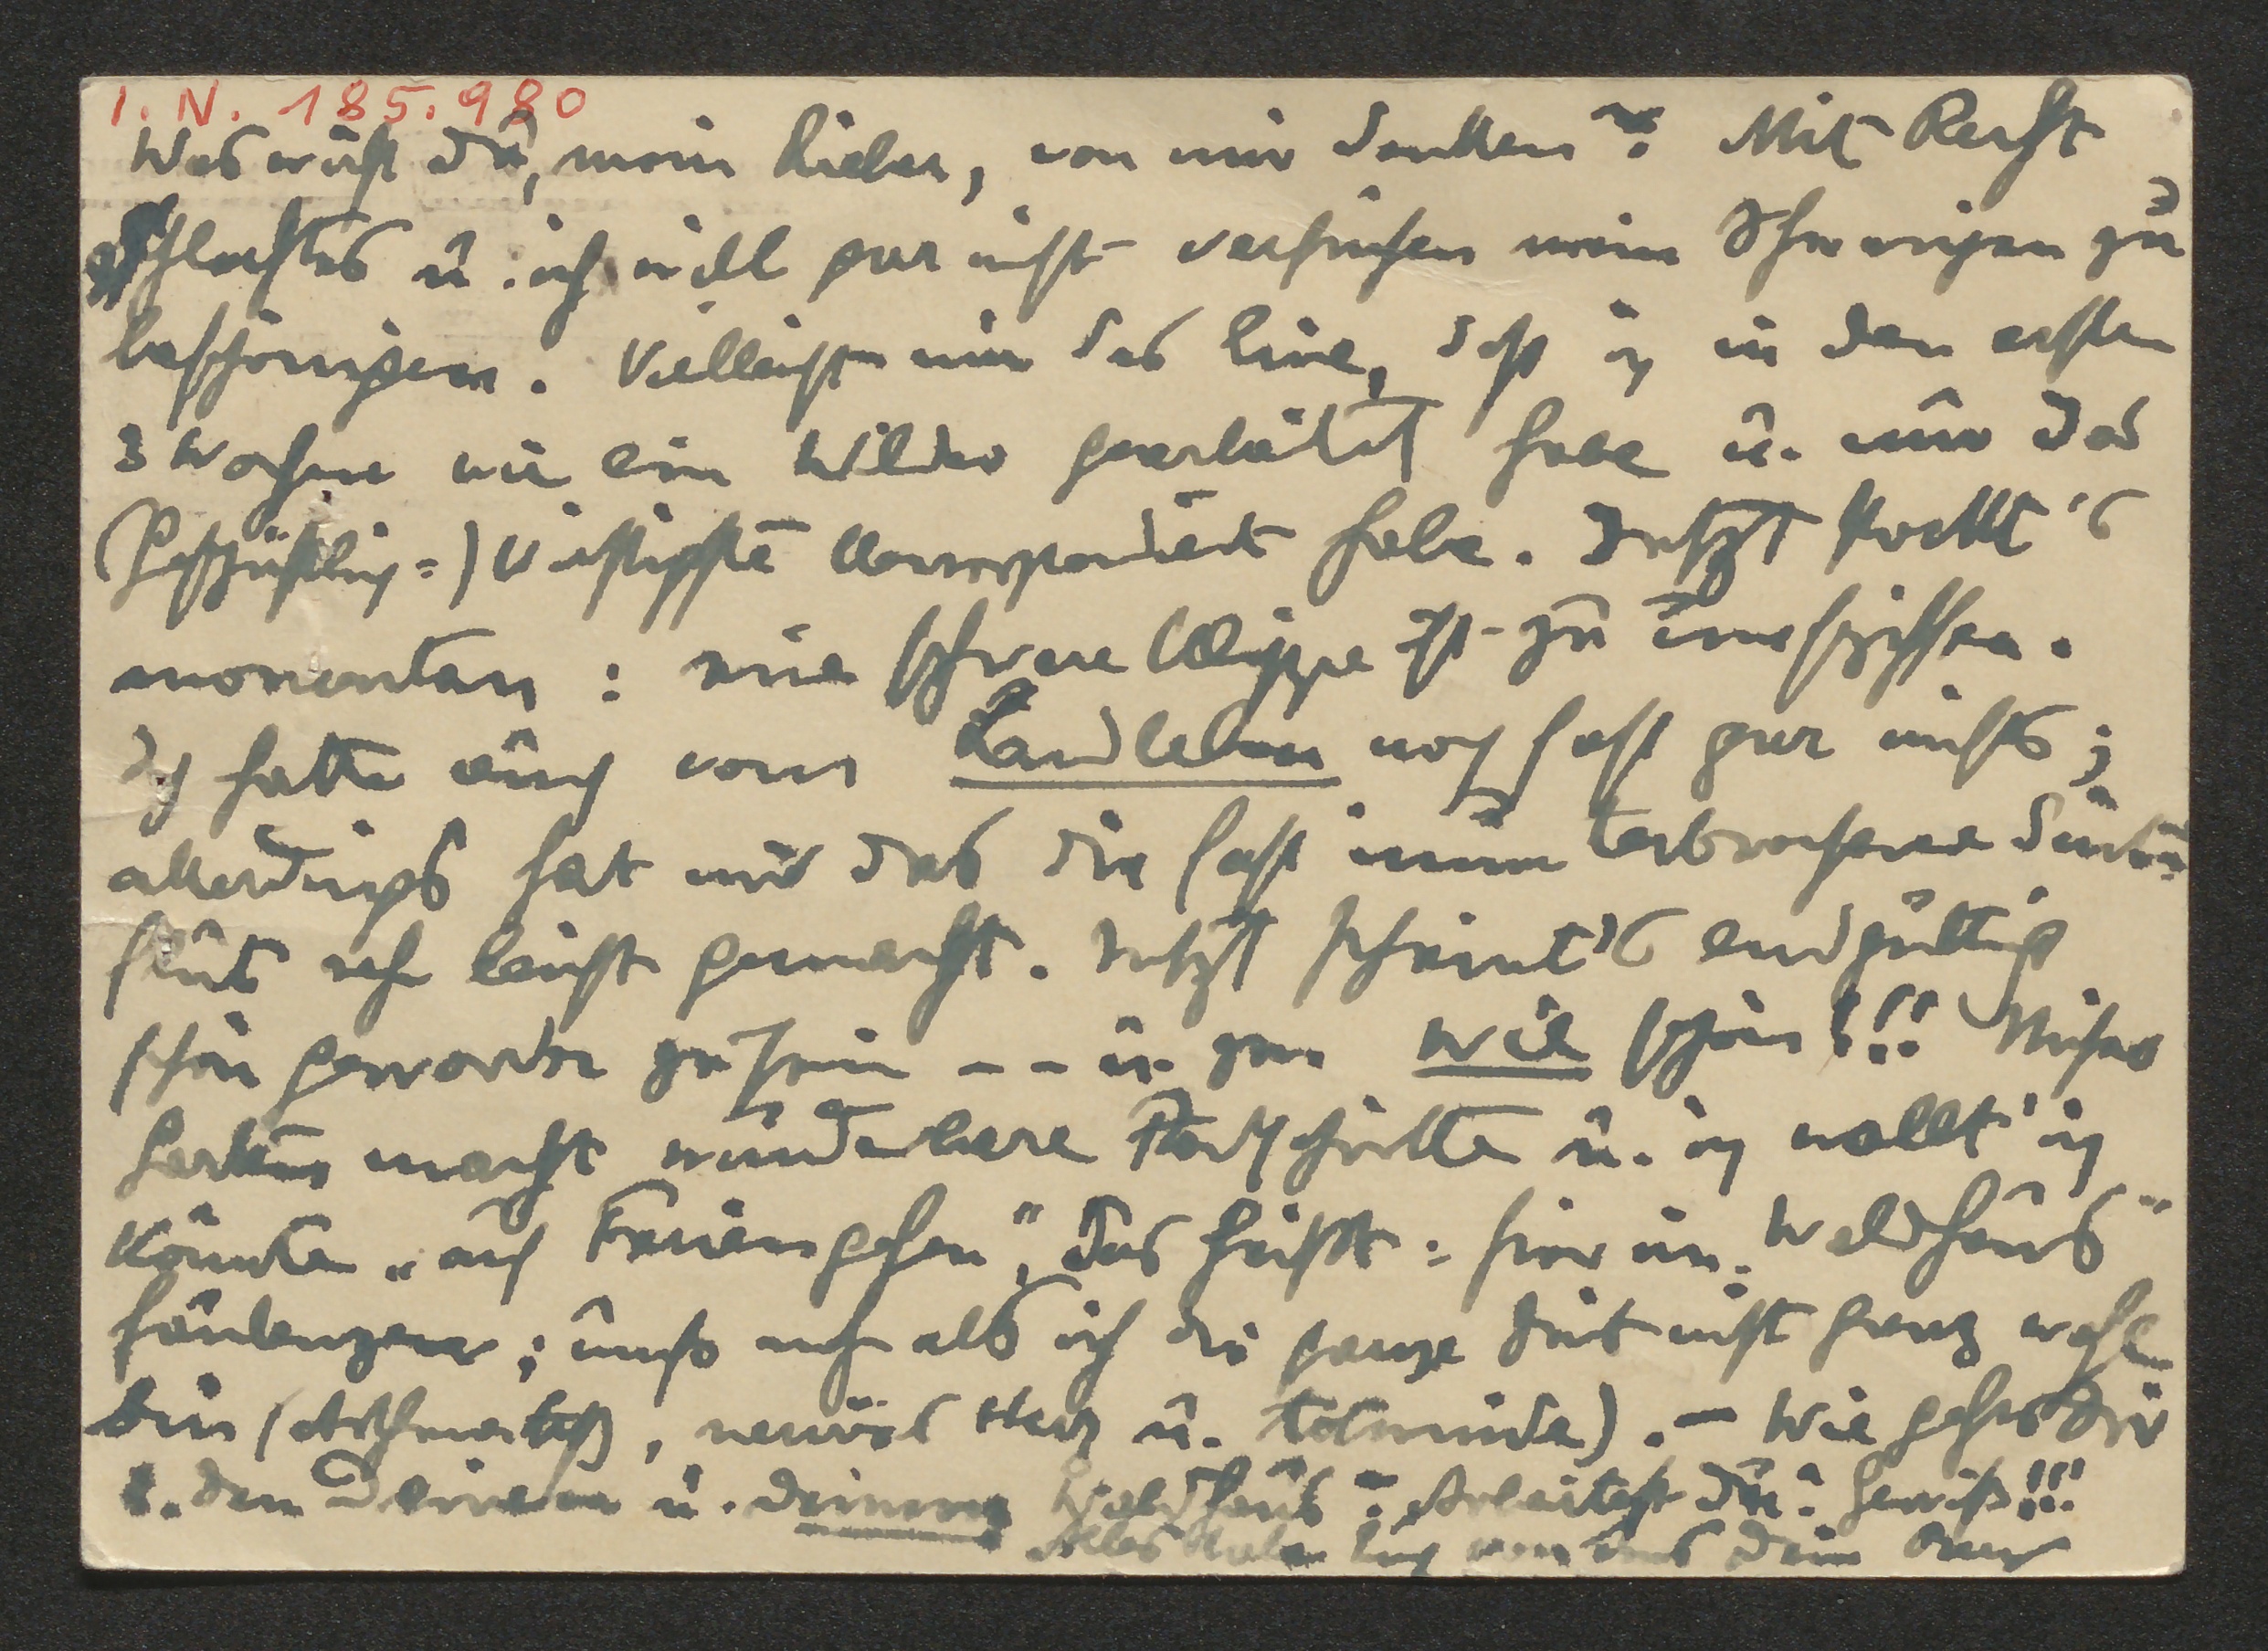 I. N. 185.980
Was wirst Du, mein Lieber, von mir denken? Mit Recht
Schlechtes u. ich will gar nicht versuchen mein Schweigen zu
beschönigen. Vielleicht nur das Eine, dass ich in den ersten
3 Wochen wie ein Wilder gearbeitet habe u. nur das
(Geschäftlich=) Wichtigste korrespondiert habe. Jetzt stockt's
momentan: eine schwere Klippe ist zu umschiffen.
Ich hatte auch vom Landleben noch fast gar nichts;
allerdings hat mir das die fast ununterbrochene Sint=
flut sehr leicht gemacht. Jetzt scheint's endgültig
schön geworden zu sein -- u. zw. wie schön!!! Unser
Garten macht wunderbare Fortschritte u. ich wollt' ich
könnte „auf Ferien gehen", das heißt: hier im „Waldhaus"
faulenzen; umso mehr als ich die ganze Zeit nicht ganz wohl
bin (Asthmatisch, nervöses Herz u. todmüde). – Wie geht es Dir
u. den Deinen u. Deinem Waldhaus? Arbeitest Du? Gewiß!!!
Alles Liebe Euch von uns Dein